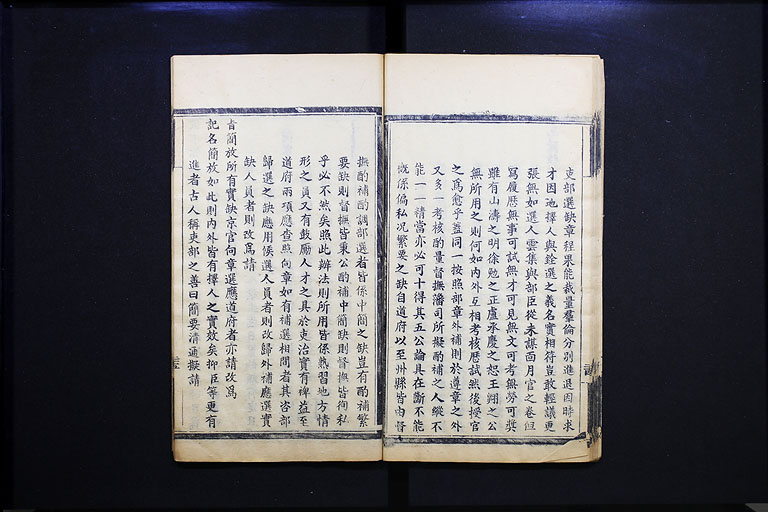 吏部選缺章程果能裁量羣倫分別進退因時求
才因地擇人與銓選之義名實相符豈敢輕議更
張無如選人雲集與部臣從未謀面月官之卷但
寫履歷無事可試無才可見無文可考無勞可獎
雖有山濤之明徐勉之正盧承慶之恕王翱之公
無所用之則何如內外互相考核歷試然後授官
之為愈乎蓋同一按照部章外補則於遵章之外
又多一考核酌量督撫藩司所擬酌補之人縱不
能一一精當亦必可十得其五公論具在斷不能
概係偏私况繁要之缺自道府以至州縣皆由督
撫酌補酌調部選者皆係中簡之缺豈有酌補繁
要缺則督撫皆秉公酌補中簡缺則督撫皆徇私
乎必不然矣照此辦法則所用皆係熟習地方情
形之員又有鼓勵人才之具於吏治實有裨益至
道府兩項應查照向章如有補選相間者其咨部
歸選之缺應用候選人員者則改歸外補應選實
缺人員者則改為請
旨簡放所有實缺京官向章選應道府者亦請改為
記名簡放如此則內外皆有擇人之實效矣抑臣等更有
進者古人稱吏部之善曰簡要清通擬請